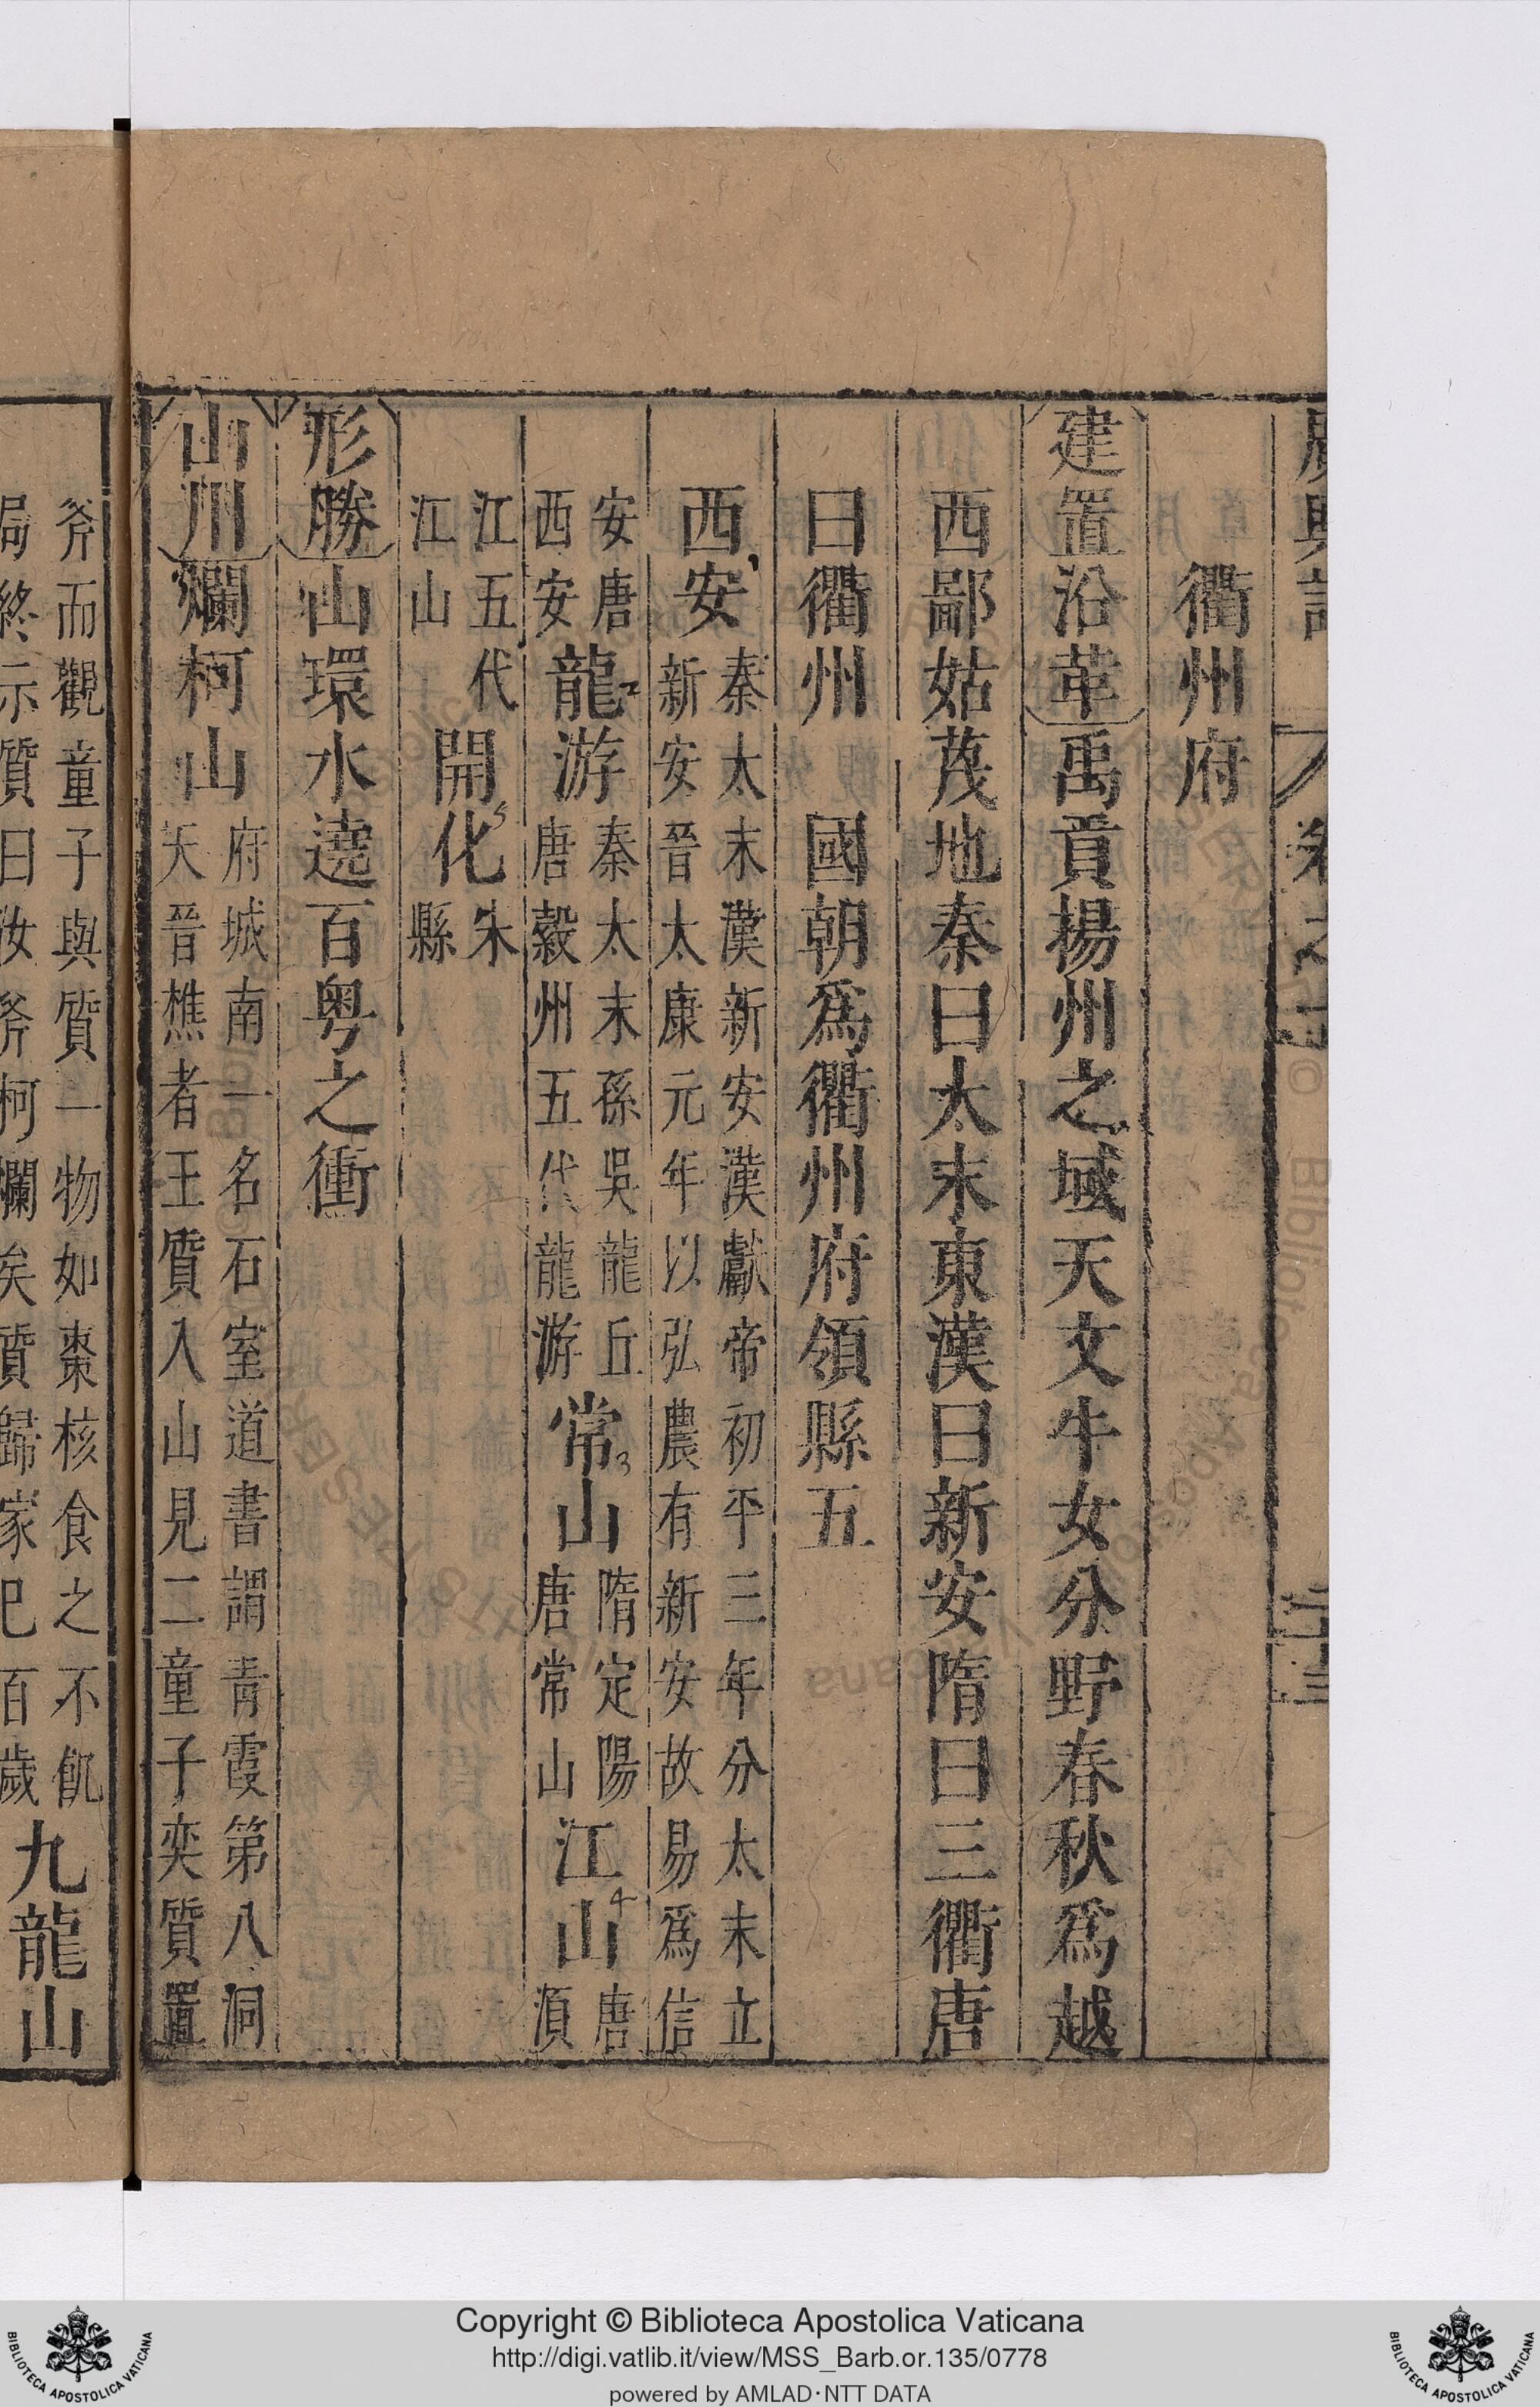 廣輿記 卷之
衢州府
建置沿革禹貢揚州之域天文牛女分野春秋爲越
西鄙姑茂地秦曰太末東漢曰新安隋曰三衢唐
曰衢州 國朝爲衢州府領縣五
西安 秦太末漢新安漢獻帝初平三年分太末立
新安晉太康元年以弘農有新安故易爲信
安唐
西安 龍游 秦太末孫吳龍丘
唐穀州五代龍游 常山 隋定陽
唐常山 江山 唐
湏
江五代
江山 開化 朱
縣
形勝山環水遶百粤之衝
山川爛柯山 府城南一名石室道書謂青霞第八洞
天晉樵者王質入山見二童子奕質置
斧而觀童子與質一物如棗核食之不飢
局終示質曰汝斧柯爛矣質歸家已百歲 九龍山
2
3
4
5
Copyright © Biblioteca Apostolica Vaticana
http://digi.vatlib.it/view/MSS_Barb.or.135/0778
powered by AMLAD·NTT DATA
BIBLIOTECA APOSTOLICA VATICANA
BIBLIOTECA APOSTOLICA VATICANA